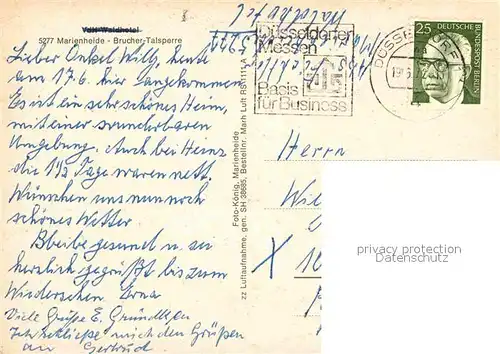 VdK-Waldhotel
5277 Marienheide - Brucher-Talsperre
Lieber Onkel Willy, heute
am 17.6. hier angekommen
Es ist ein sehr schönes Heim,
mit einer wunderbaren
Umgebung. Auch bei Heinz
die 1½ Tage waren nett.
Wünschen uns nur noch
schönes Wetter
Bleibe gesund u. sei
herzlich gegrüßt bis zum
Wiedersehen Erna
Viele Grüße E.
mich den Grüßen
an Gertrud
zz Luftaufnahme, gen. SH 38685, Bestellnr. Marh Luft RS 1111 A
Foto-König, Marienheide
Düsseldorfer
Messen
Basis
für Business
DÜSSELDORF
25
DEUTSCHE
BUNDESPOST BERLIN
Herrn
X
privacy protection
Datenschutz